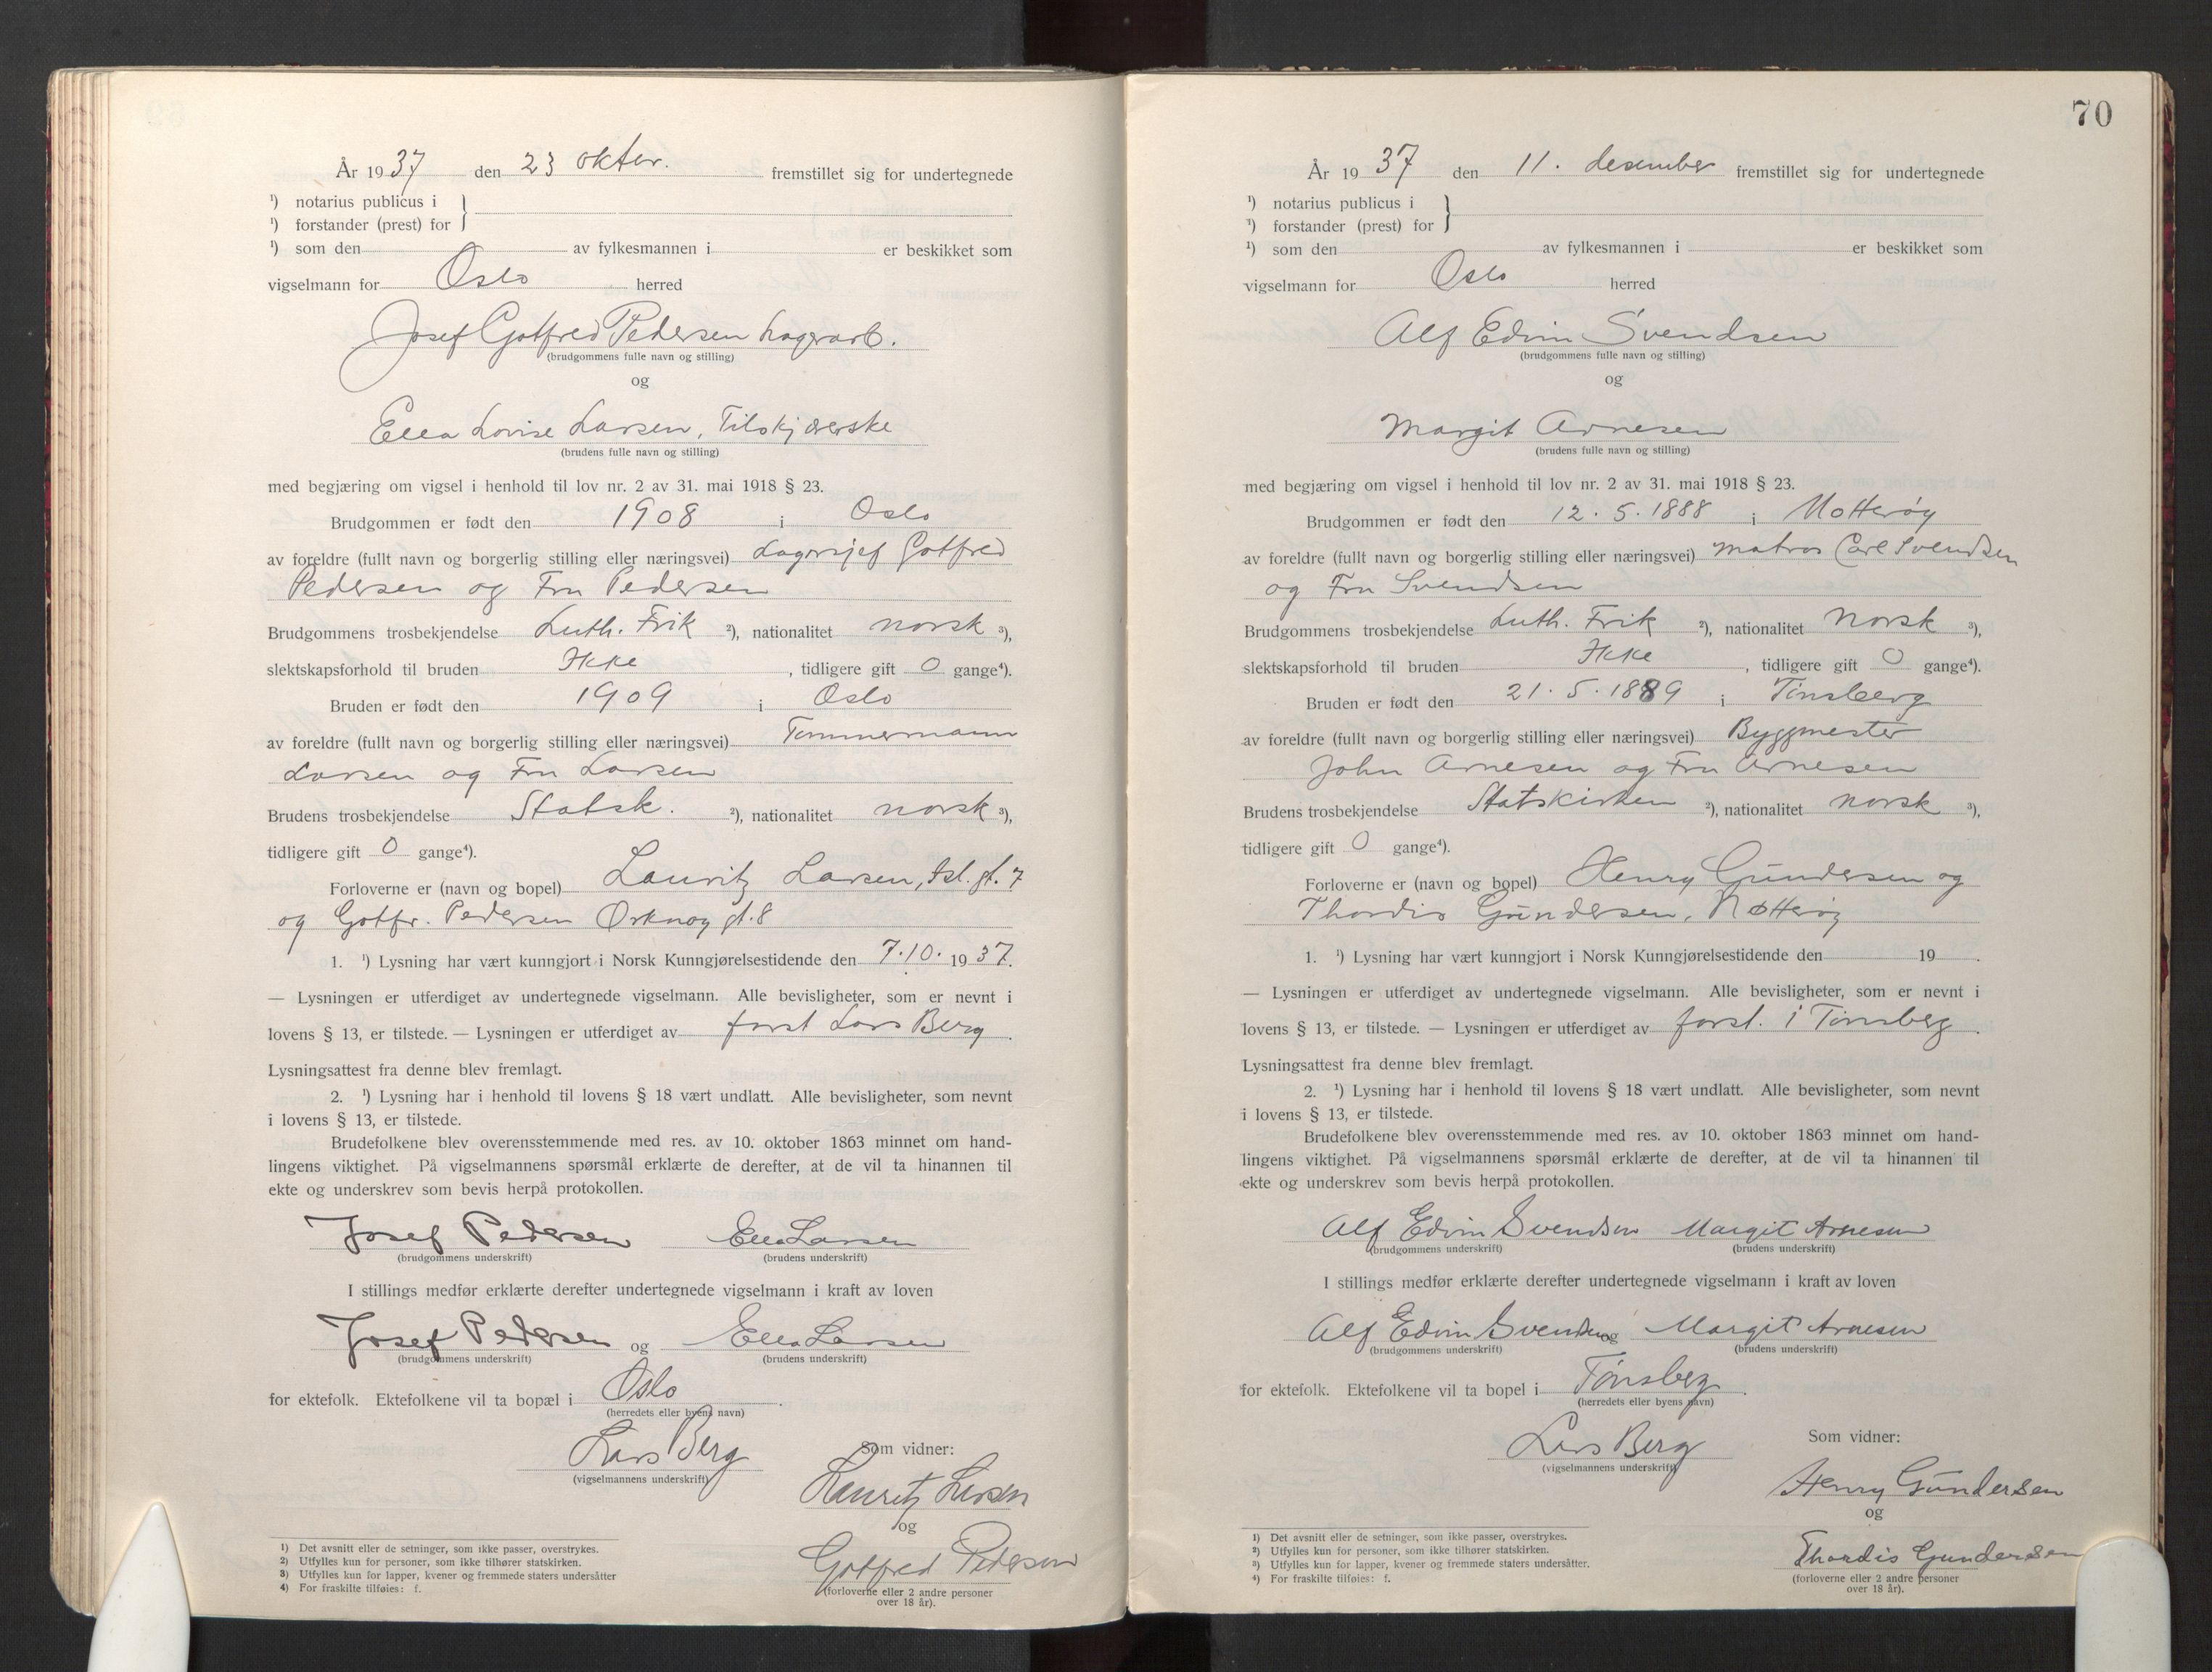 År 1937 den 23 okter. fremstillet sig for undertegnede
¹) notarius publicus i
¹) forstander (prest) for
¹) som den av fylkesmannen i er beskikket som
vigselmann for Oslo herred
Josef Gotfred Pedersen Lagerarb.
(brudgommens fulle navn og stilling)
og
Ella Lovise Larsen, Tilskjærerske
(brudens fulle navn og stilling)
med begjæring om vigsel i henhold til lov nr. 2 av 31. mai 1918 § 23.
Brudgommen er født den 1908 i Oslo
av foreldre (fullt navn og borgerlig stilling eller næringsvei) Lagersjef Gotfred
Pedersen og Fru Pedersen
Brudgommens trosbekjendelse Luth. Frik ²), nationalitet norsk ³),
slektskapsforhold til bruden Ikke , tidligere gift 0 gange⁴).
Bruden er født den 1909 i Oslo
av foreldre (fullt navn og borgerlig stilling eller næringsvei) Tømmermann
Larsen og Fru Larsen
Brudens trosbekjendelse Statsk. ²), nationalitet norsk ³),
tidligere gift 0 gange⁴).
Forloverne er (navn og bopel) Lauritz Larsen, gt. 7
og Gotfr. Pedersen Orknøy gt. 8
1. ¹) Lysning har vært kunngjort i Norsk Kunngjørelsestidende den 7.10. 1937.
— Lysningen er utferdiget av undertegnede vigselmann. Alle bevisligheter, som er nevnt i
lovens § 13, er tilstede. — Lysningen er utferdiget av forst Lars Berg .
Lysningsattest fra denne blev fremlagt.
2. ¹) Lysning har i henhold til lovens § 18 vært undlatt. Alle bevisligheter, som nevnt
i lovens § 13, er tilstede.
Brudefolkene blev overensstemmende med res. av 10. oktober 1863 minnet om hand-
lingens viktighet. På vigselmannens spørsmål erklærte de derefter, at de vil ta hinannen til
ekte og underskrev som bevis herpå protokollen.
Josef Pedersen Ella Larsen
(brudgommens underskrift) (brudens underskrift)
I stillings medfør erklærte derefter undertegnede vigselmann i kraft av loven
Josef Pedersen og Ella Larsen
(brudgommens underskrift) (brudens underskrift)
for ektefolk. Ektefolkene vil ta bopæl i Oslo .
(herredets eller byens navn)
Lars Berg
(vigselmannens underskrift)
Som vidner:
Lauritz Larsen
og
Gotfred Pedersen
(forloverne eller 2 andre personer
over 18 år).
1) Det avsnitt eller de setninger, som ikke passer, overstrykes.
2) Utfylles kun for personer, som ikke tilhører statskirken.
3) Utfylles kun for lapper, kvener og fremmede staters undersåtter
4) For fraskilte tilføies: f.
70
År 1937 den 11. desember fremstillet sig for undertegnede
¹) notarius publicus i
¹) forstander (prest) for
¹) som den av fylkesmannen i er beskikket som
vigselmann for Oslo herred
Alf Edvin Svendsen
(brudgommens fulle navn og stilling)
og
Margit Arnesen
(brudens fulle navn og stilling)
med begjæring om vigsel i henhold til lov nr. 2 av 31. mai 1918 § 23.
Brudgommen er født den 12.5.1888 i Nøtterøy
av foreldre (fullt navn og borgerlig stilling eller næringsvei) matros Carl Svendsen
og Fru Svendsen
Brudgommens trosbekjendelse Luth. Frik ²), nationalitet norsk ³),
slektskapsforhold til bruden Ikke , tidligere gift 0 gange⁴).
Bruden er født den 21.5.1889 i Tønsberg
av foreldre (fullt navn og borgerlig stilling eller næringsvei) Byggmester
John Arnesen og Fru Arnesen
Brudens trosbekjendelse Statskirken ²), nationalitet norsk ³),
tidligere gift 0 gange⁴).
Forloverne er (navn og bopel) Henry Gundersen og
Thordis Gundersen, Nøtterøy
1. ¹) Lysning har vært kunngjort i Norsk Kunngjørelsestidende den 19 .
— Lysningen er utferdiget av undertegnede vigselmann. Alle bevisligheter, som er nevnt i
lovens § 13, er tilstede. — Lysningen er utferdiget av forst. i Tønsberg .
Lysningsattest fra denne blev fremlagt.
2. ¹) Lysning har i henhold til lovens § 18 vært undlatt. Alle bevisligheter, som nevnt
i lovens § 13, er tilstede.
Brudefolkene blev overensstemmende med res. av 10. oktober 1863 minnet om hand-
lingens viktighet. På vigselmannens spørsmål erklærte de derefter, at de vil ta hinannen til
ekte og underskrev som bevis herpå protokollen.
Alf Edvin Svendsen Margit Arnesen
(brudgommens underskrift) (brudens underskrift)
I stillings medfør erklærte derefter undertegnede vigselmann i kraft av loven
Alf Edvin Svendsen og Margit Arnesen
(brudgommens underskrift) (brudens underskrift)
for ektefolk. Ektefolkene vil ta bopel i Tønsberg .
(herredets eller byens navn)
Lars Berg
(vigselmannens underskrift)
Som vidner:
Henry Gundersen
og
Thordis Gundersen
(forloverne eller 2 andre personer
over 18 år).
1) Det avsnitt eller de setninger, som ikke passer, overstrykes.
2) Utfylles kun for personer, som ikke tilhører statskirken.
3) Utfylles kun for lapper, kvener og fremmede staters undersåtter.
4) For fraskilte tilføies: f.